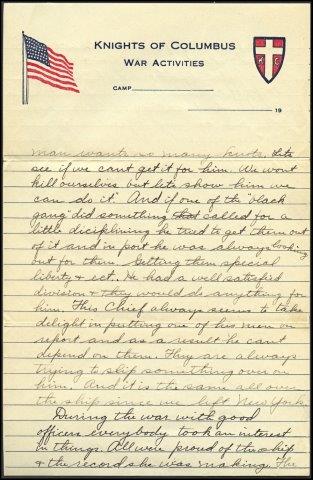 KNIGHTS OF COLUMBUS
WAR ACTIVITIES
K C
CAMP
19
man wants so many knots. Lets
see if we cant get it for him. We wont
kill ourselves but lets show him we
can do it" And if one of the "black
gang" did something that called for a
little diciplining he tried to get them out
of it and in port he was always looking
out for them. Getting them special
liberty & ect. He had a well satisfied
division & they would do anything for
him. This Chief always seems to take
delight in putting one of his men on
report and as a result he cant
depend on them. They are always
trying to slip something over on
him. And it is the same all over
the ship since we left New York.
During the war with good
officers everybody took an interest
in things. All were proud of the ship
& the record she was making. The